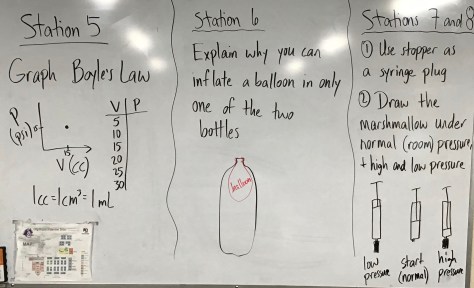 Station 5
Graph Boyle's Law
P
(psi)
15
V (cc)
V P
5
10
15
20
25
30
1cc=1cm³=1mL
Station 6
Explain why you can
inflate a balloon in only
one of the two
bottles
balloon
Stations 7 and 8
① Use stopper as
a syringe plug
② Draw the
marshmallow under
normal (room) pressure,
+ high and low pressure
low
pressure
start
(normal)
high
pressure